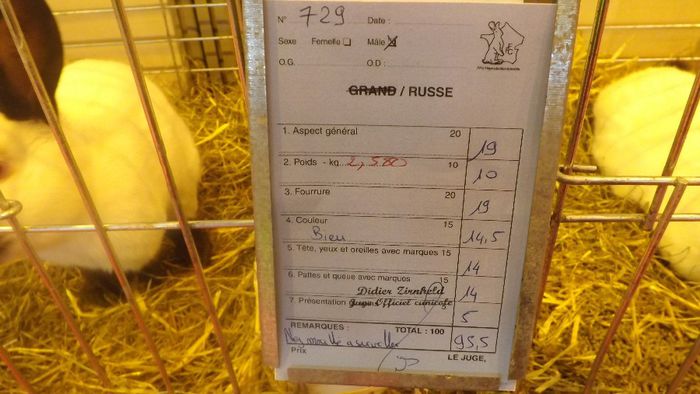 N° 729 Date :
Sexe Femelle ☐ Mâle ☒
O.G. O.D :
GRAND / RUSSE
1. Aspect général 20 19
2. Poids - kg...2,580 10 10
3. Fourrure 20 19
4. Couleur 15 14,5
Bleu
5. Tête, yeux et oreilles avec marques 15 14
6. Pattes et queue avec marques 15 14
Didier Zirnheld
7. Présentation 5
Juge Officiel cunicole
REMARQUES : TOTAL : 100 95,5
a surveiller
Prix LE JUGE,